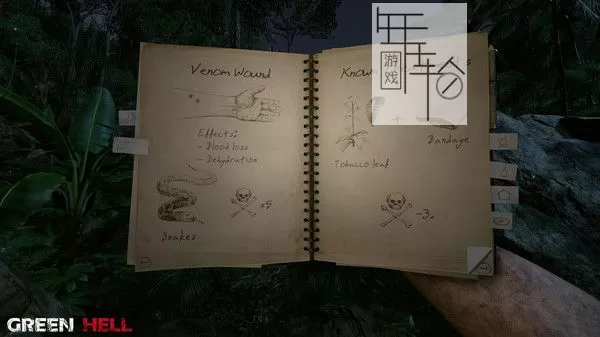 Venom Wound
Effects:
- Blood loss
- Dehydration
x5
Snakes
Know
游戏
+
Bandage
Tobacco leaf
-3
GREEN HELL